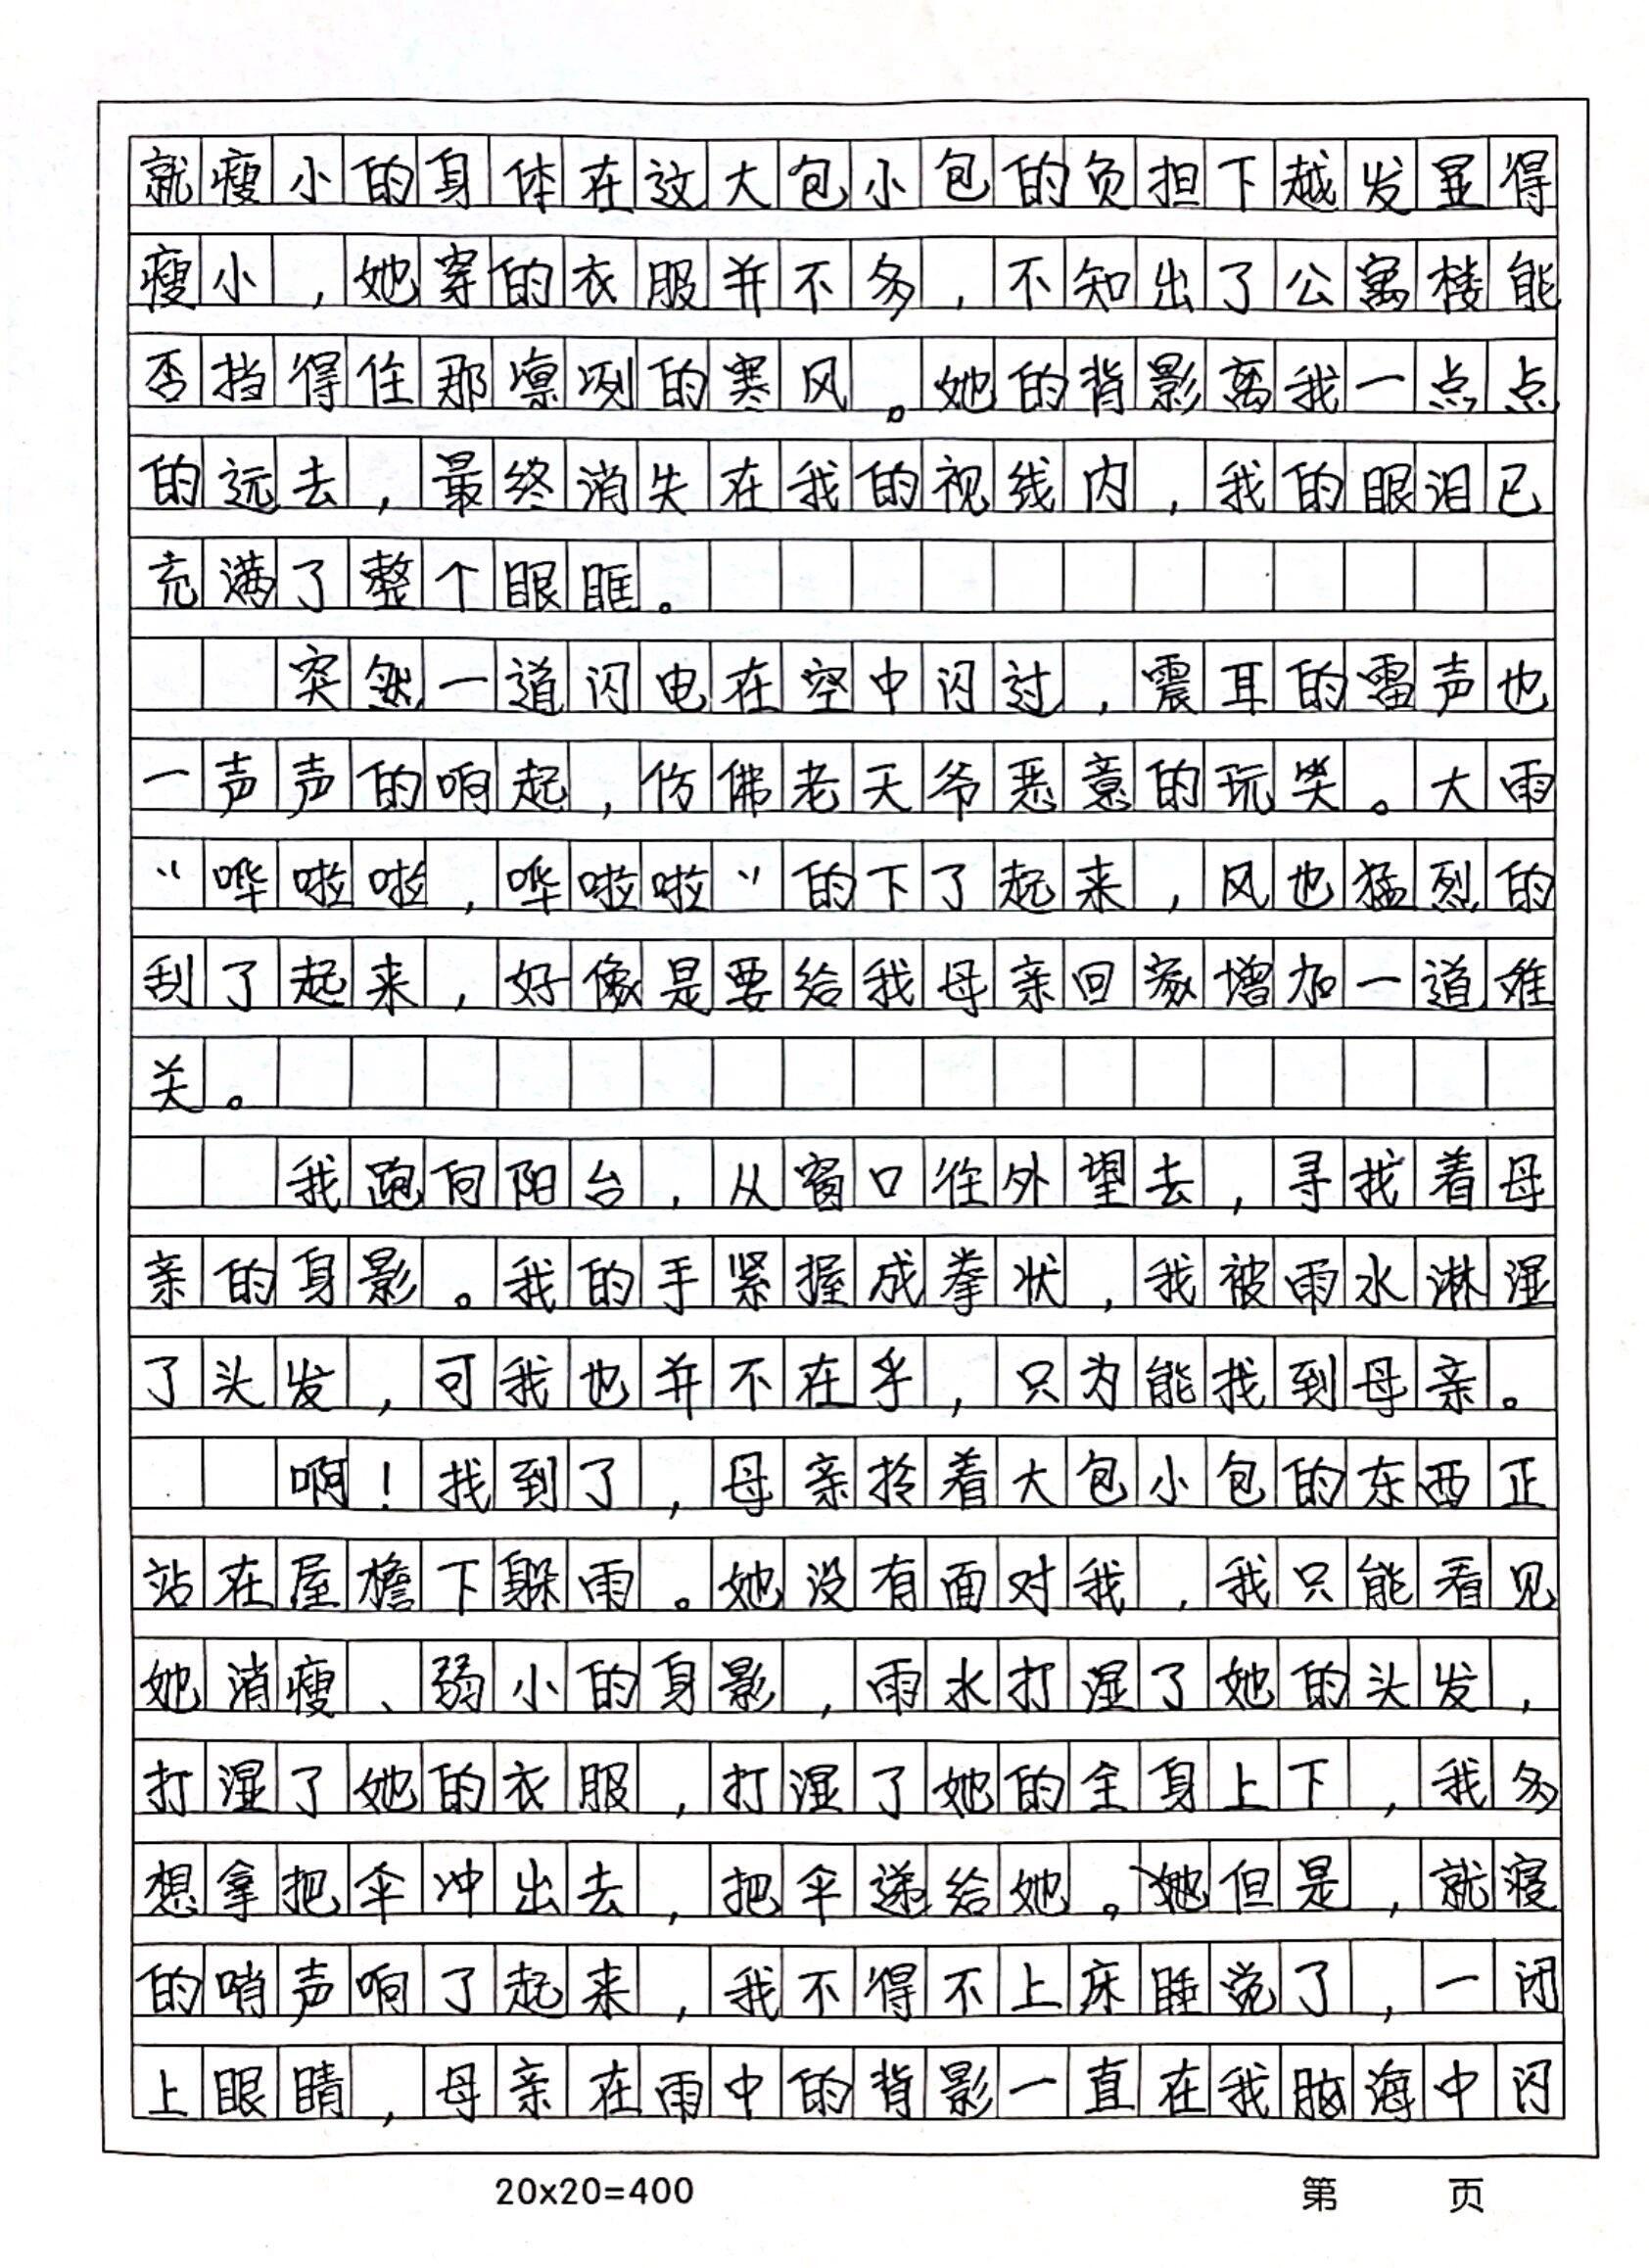 就瘦小的身体在这大包小包的负担下越发显得
瘦小,她穿的衣服并不多,不知出了公寓楼能
否挡得住那凛冽的寒风。她的背影离我一点点
的远去,最终消失在我的视线内,我的眼泪已
充满了整个眼眶。
突然一道闪电在空中闪过,震耳的雷声也
一声声的响起,仿佛老天爷恶意的玩笑。大雨
“哗啦啦,哗啦啦”的下了起来,风也猛烈的
刮了起来,好像是要给我母亲回家增加一道难
关。
我跑向阳台,从窗口往外望去,寻找着母
亲的身影。我的手紧握成拳状,我被雨水淋湿
了头发,可我也并不在乎,只为能找到母亲。
啊!找到了,母亲拎着大包小包的东西正
站在屋檐下躲雨。她没有面对我,我只能看见
她消瘦、弱小的身影,雨水打湿了她的头发,
打湿了她的衣服,打湿了她的全身上下,我多
想拿把伞冲出去,把伞递给她。她但是,就寝
的哨声响了起来,我不得不上床睡觉了,一闭
上眼睛,母亲在雨中的背影一直在我脑海中闪
20x20=400 第 页